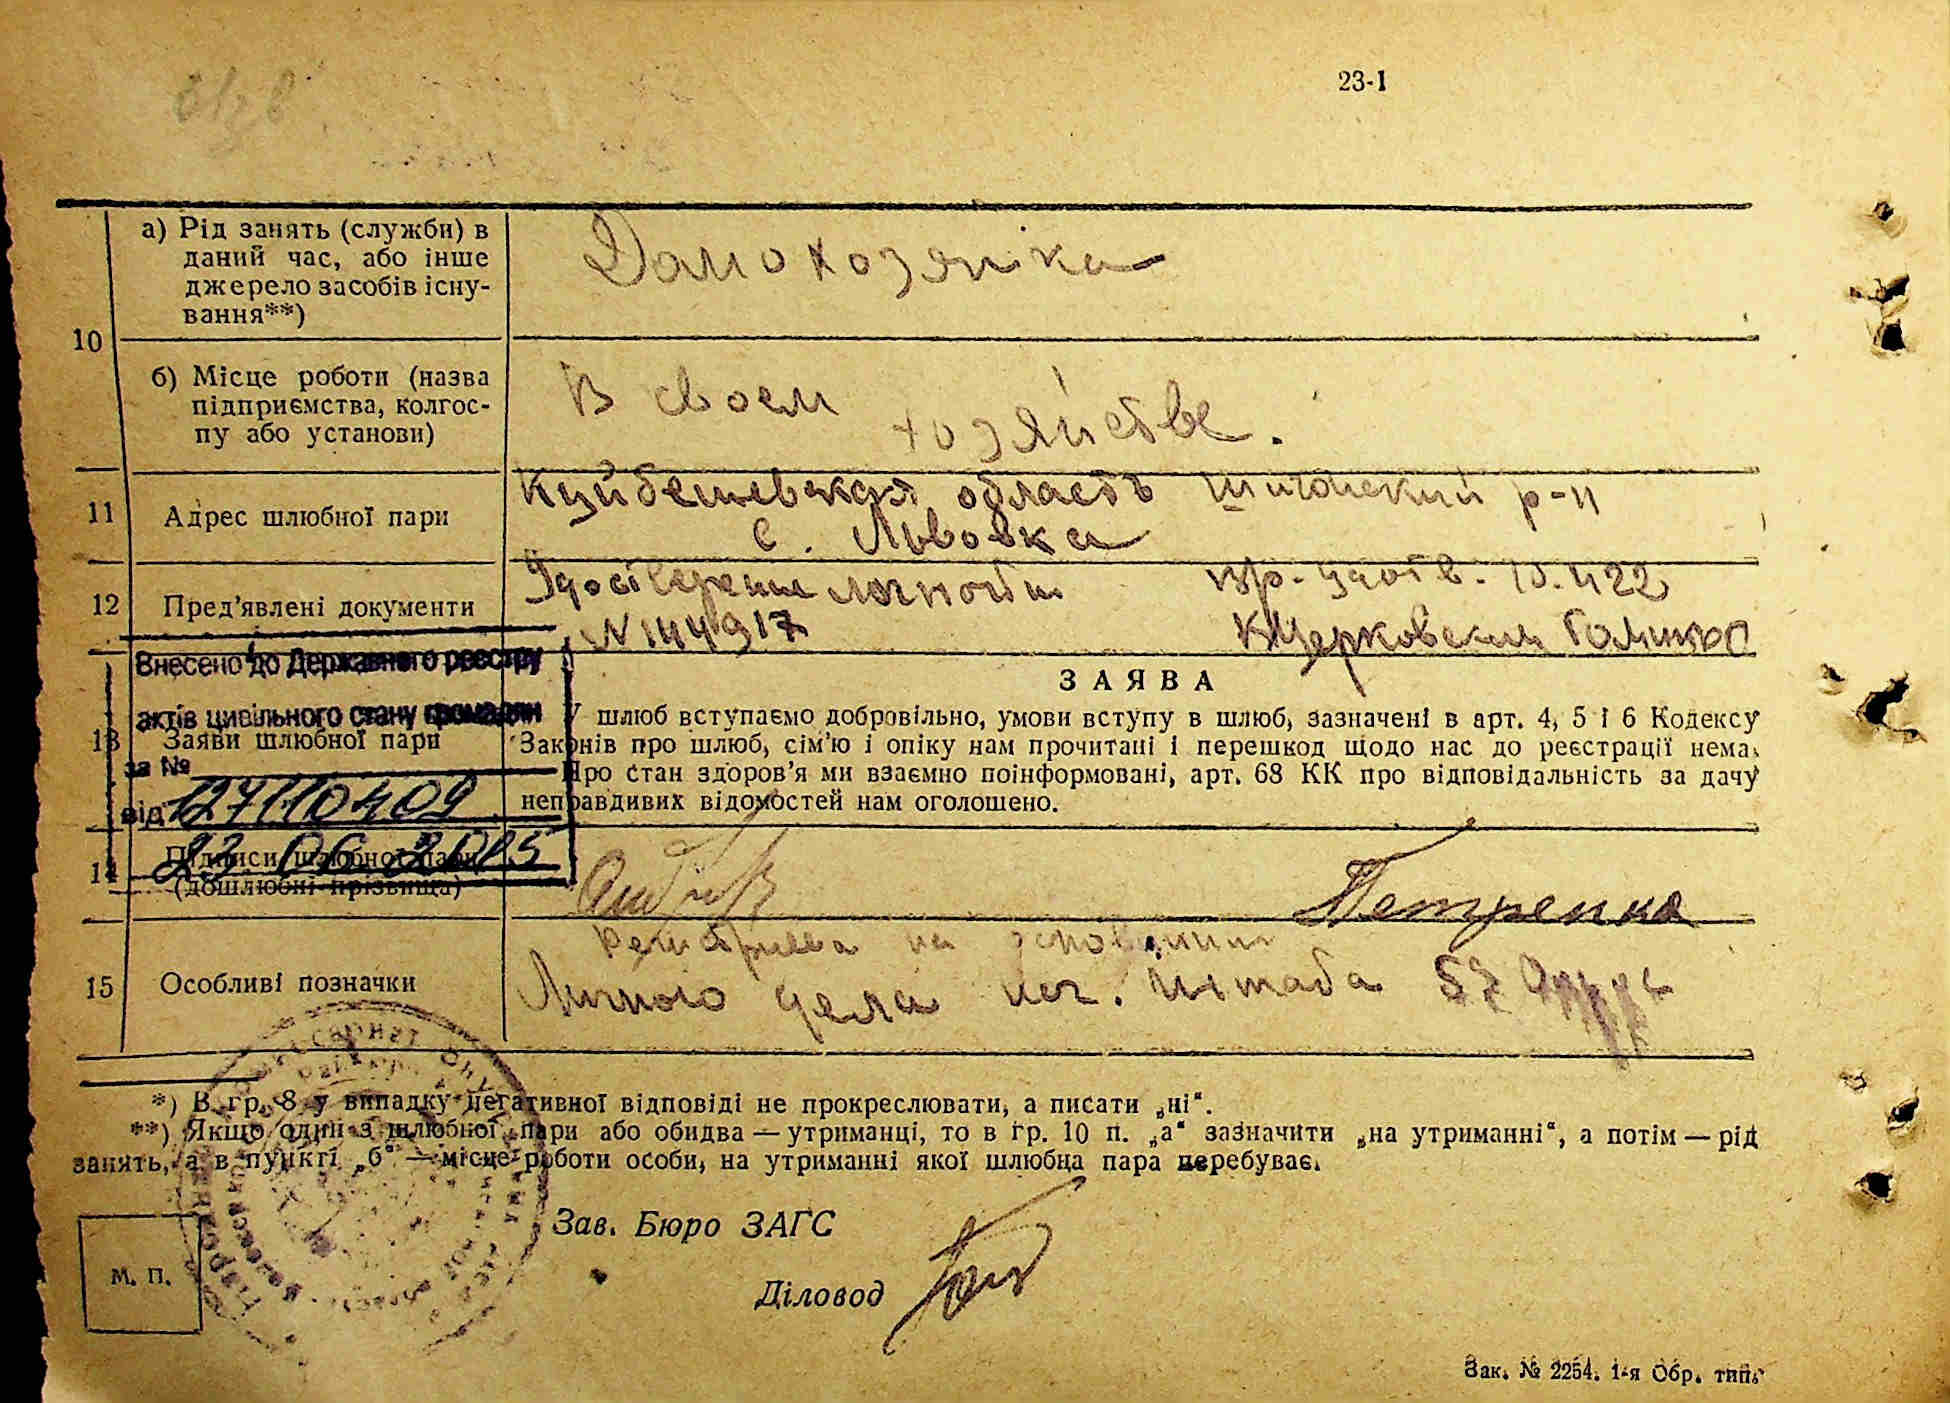 23-1
а) Рід занять (служби) в
даний час, або інше
джерело засобів існу-
вання**)
Домохозяйка
10
б) Місце роботи (назва
підприємства, колгос-
пу або установи)
В своем
хозяйстве.
11
Адрес шлюбної пари
Куйбешевская область Шигонский р-н
с. Львовка
12
Пред'явлені документи
Удостверение личности
N 144917
вр. удотв. 10.422
Внесено до Державного реєстру
актів цивільного стану громадян
за № 127110409
від 23 06 2015
13
Заяви шлюбної пари
ЗАЯВА
У шлюб вступаємо добровільно, умови вступу в шлюб, зазначені в арт. 4, 5 і 6 Кодексу
Законів про шлюб, сім'ю і опіку нам прочитані і перешкод щодо нас до реєстрації нема.
Про стан здоров'я ми взаємно поінформовані, арт. 68 КК про відповідальність за дачу
неправдивих відомостей нам оголошено.
14
Підписи шлюбної пари
(дошлюбні прізвища)
Петренко
15
Особливі позначки
на основании
Личного дела нач. Штаба 57
*) В гр. 8 у випадку негативної відповіді не прокреслювати, а писати „ні“.
**) Якщо один з шлюбної пари або обидва — утриманці, то в гр. 10 п. „а“ зазначити „на утриманні“, а потім — рід
занять, а в пункті „б“ — місце роботи особи, на утриманні якої шлюбна пара перебуває.
Зав. Бюро ЗАГС
М. П.
Діловод
Зак. № 2254. 1-я Обр. тип.